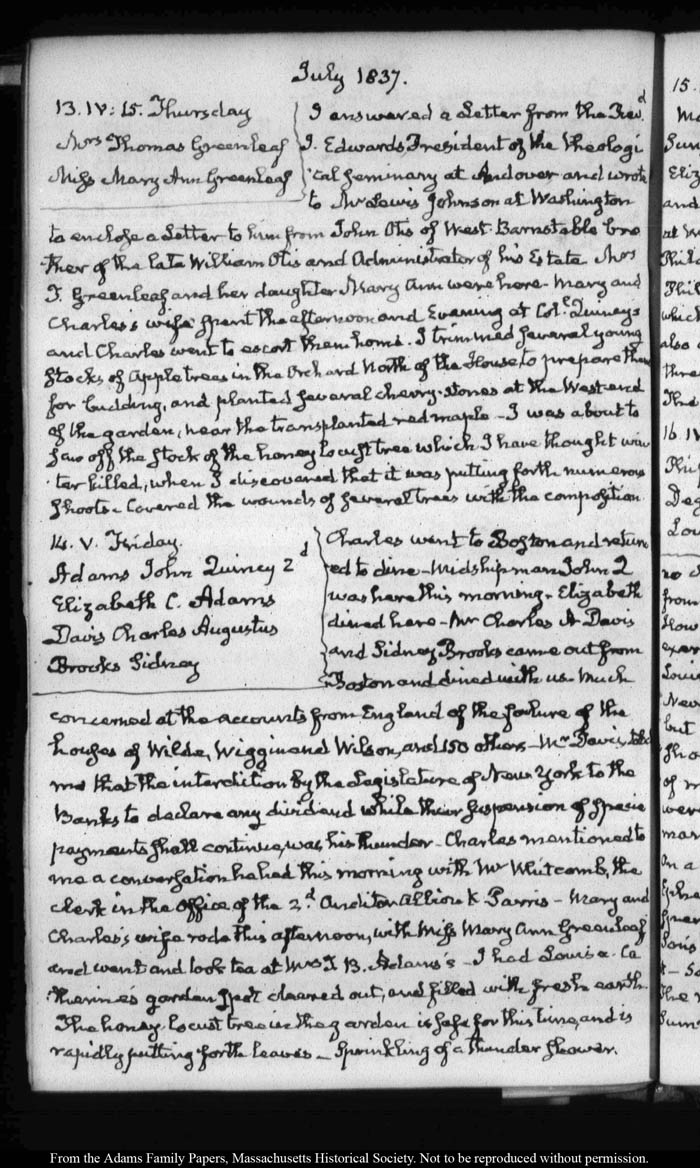 July 1837.
13. IV: 15. Thursday
Mrs Thomas Greenleaf
Miss Mary Ann Greenleaf
I answered a Letter from the Revd
J. Edwards President of the Theologi
cal Seminary at Andover and wrote
to Mr Lewis Johnson at Washington
to enclose a Letter to him from John Otis of West-Barnstable bro
ther of the late William Otis and Administrator of his Estate. Mrs
T. Greenleaf and her daughter Mary Ann were here. Mary and
Charles's wife spent the afternoon and Evening at Col. Quincy's
and Charles went to escort them home. I trimmed several young
stocks of apple trees in the Orchard North of the House to prepare them
for budding, and planted several cherry-stones at the West end
of the garden, near the transplanted red maple - I was about to
saw off the stock of the honey locust tree which I have thought win
ter killed, when I discovered that it was putting forth numerous
shoots. Covered the wounds of several trees with the composition.
14. V. Friday.
Adams John Quincy 2d
Elizabeth C. Adams
Davis Charles Augustus
Brooks Sidney
Charles went to Boston and return
ed to dine - Midshipman John Q
was here this morning. Elizabeth
dined here - Mr Charles A Davis
and Sidney Brooks came out from
Boston and dined with us. Much
concerned at the accounts from England of the failure of the
houses of Wilde, Wiggin and Wilson, and 150 others - Mr Davis told
me that the interdiction by the Legislature of New York to the
Banks to declare any dividend while their suspension of specie
payments shall continue, was his thunder - Charles mentioned to
me a conversation he had this morning with Mr Whitcomb, the
clerk in the office of the 2d Auditor Albion K Parris - Mary and
Charles's wife rode this afternoon, with Miss Mary Ann Greenleaf
and went and took tea at Mrs J. B. Adams's - I had Louisa Ca
therine's garden spot cleaned out, and filled with fresh earth.
The honey locust tree in the garden is safe for this time, and is
rapidly putting forth leaves - Sprinkling of a thunder shower.
From the Adams Family Papers, Massachusetts Historical Society. Not to be reproduced without permission.